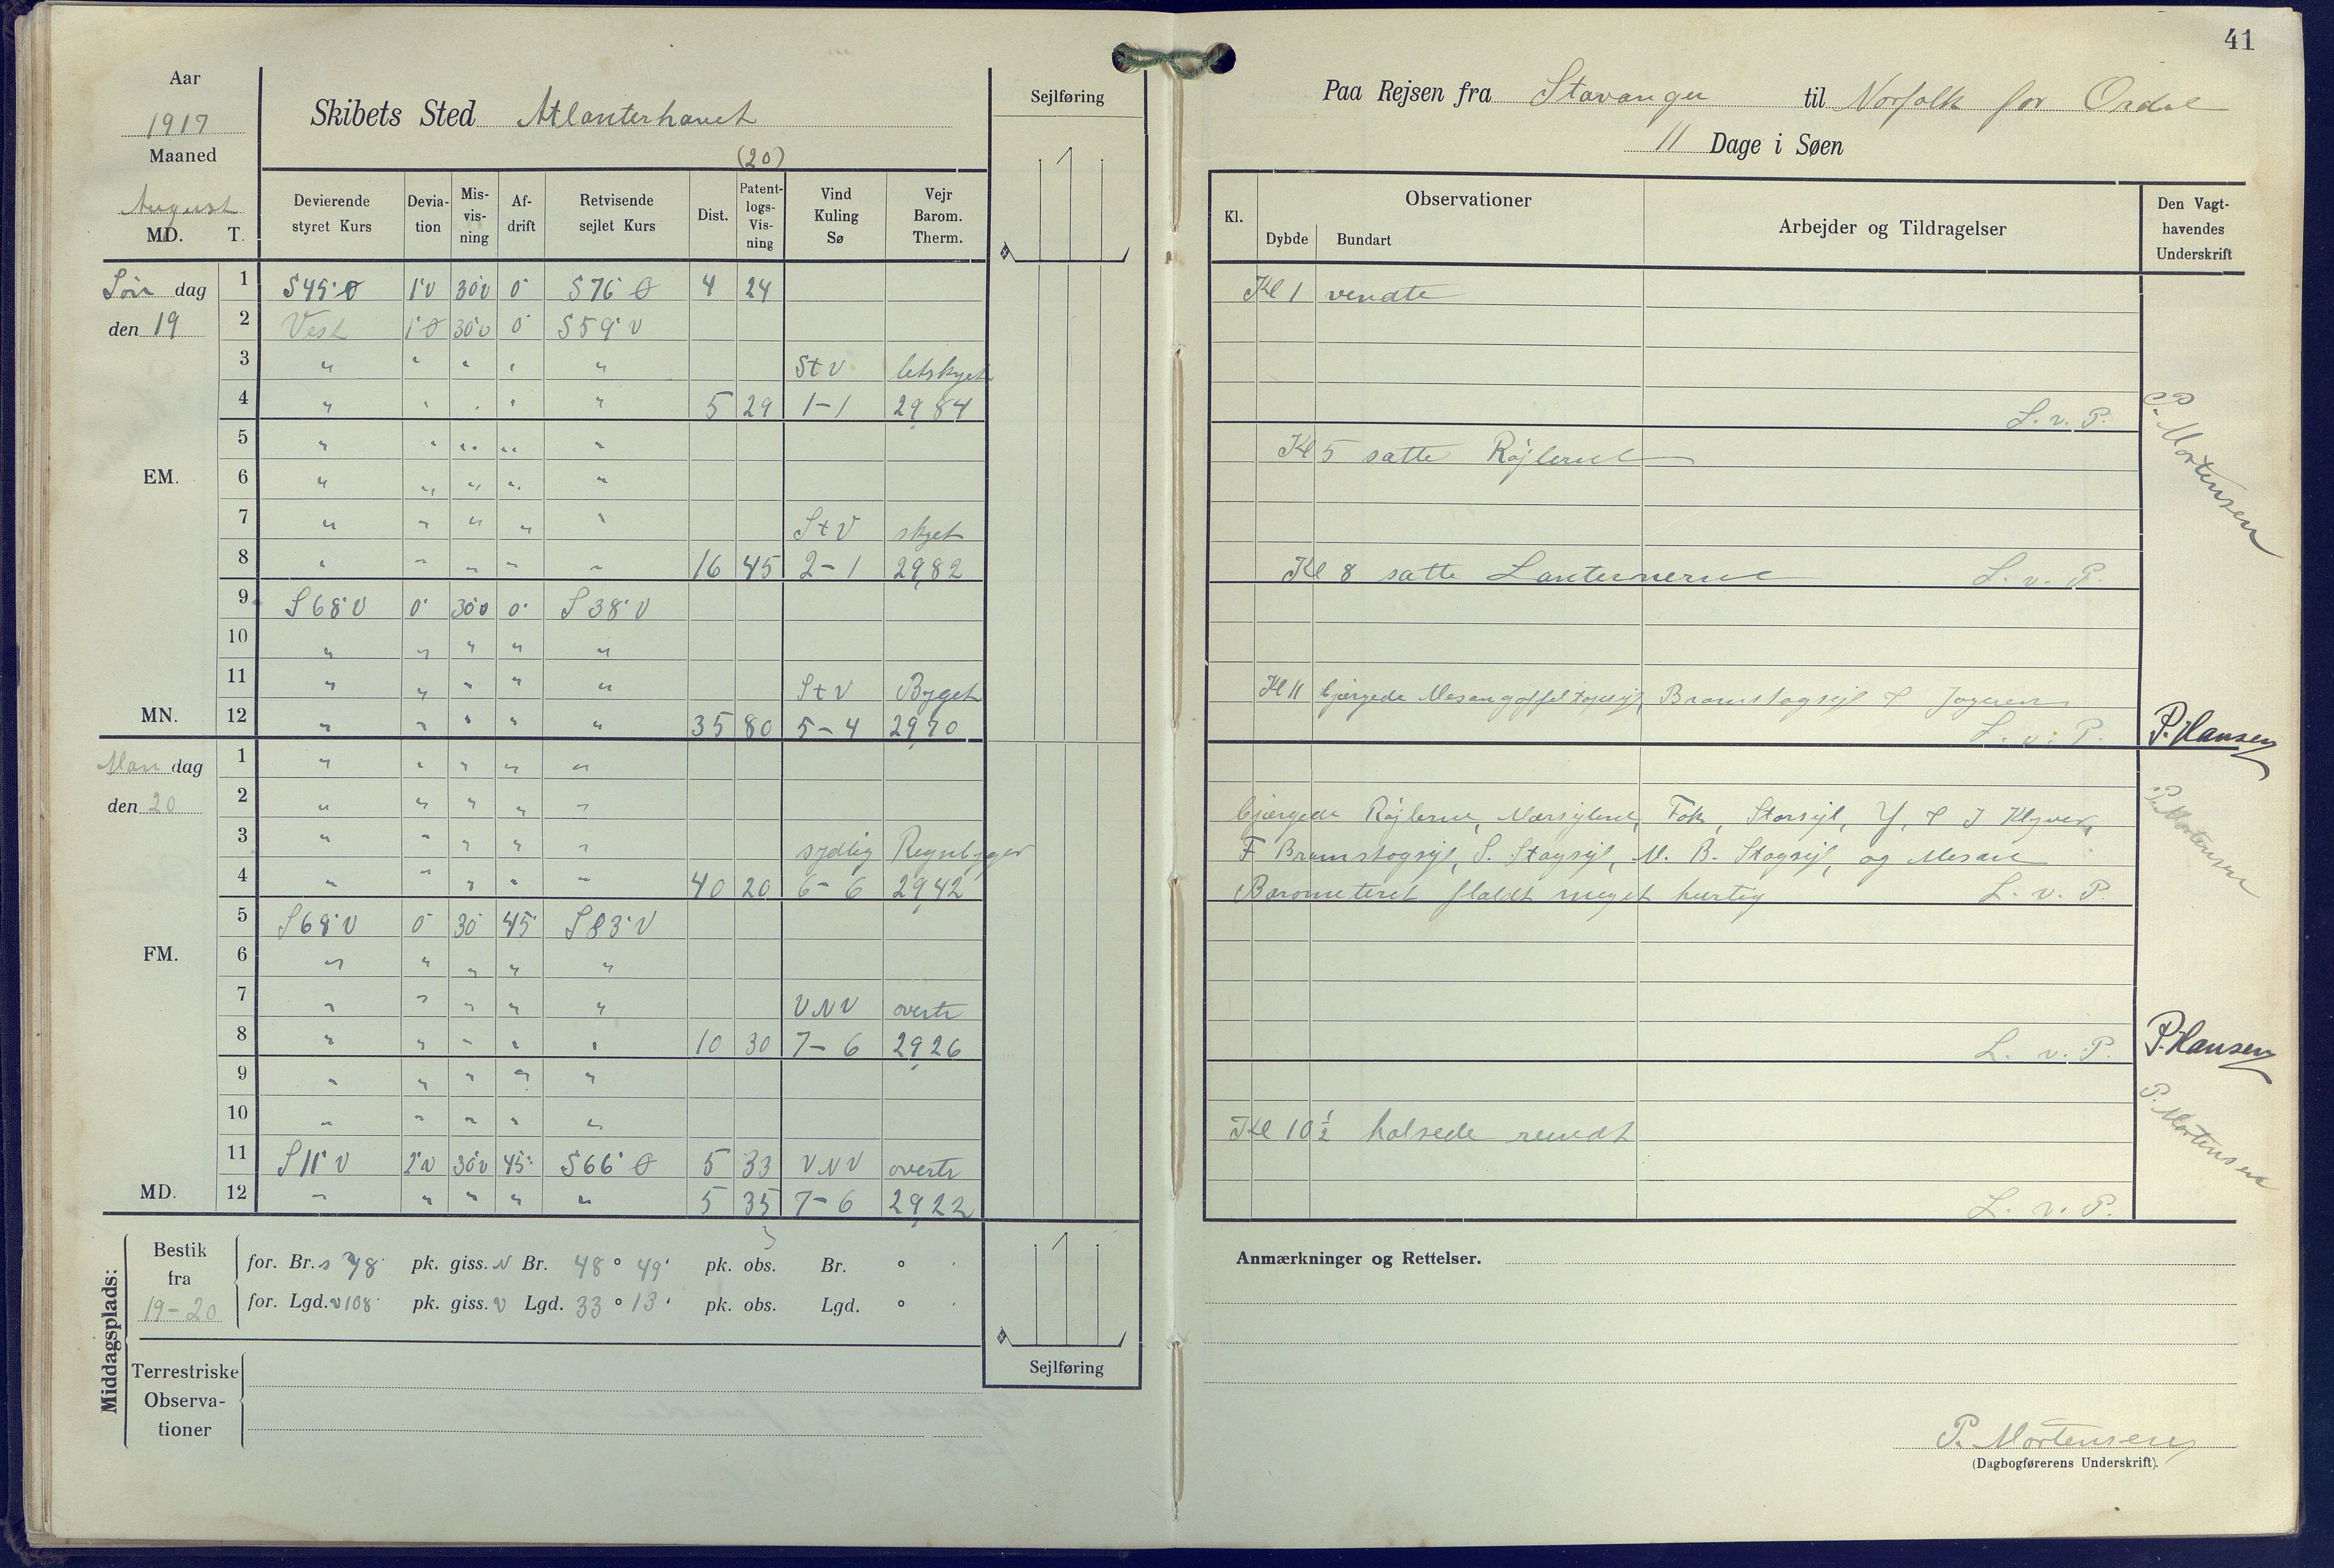 41
Aar
1917
Maaned
August
MD. T.
Skibets Sted Atlanterhavet
(20)
Sejlføring
Paa Rejsen fra Stavanger til Norfolk for Order
11 Dage i Søen
Devierende styret Kurs | Devia-tion | Mis-vis-ning | Af-drift | Retvisende sejlet Kurs | Dist. | Patent-logs-Vis-ning | Vind Kuling Sø | Vejr Barom. Therm.
Kl. | Observationer | Dybde | Bundart | Arbejder og Tildragelser | Den Vagt-havendes Underskrift
Søn dag 1 S45°Ø 1°V 30°V 0° S76°Ø 4 24
Kl 1 vendte
den 19 2 Vest 1°Ø 30°V 0° S59°V
3 " " " " " StV letskyet
4 " " " " " 5 29 1-1 29,84
L. v. P.
P. Mortensen
5 " " " " "
Kl 5 satte Røjlerne
EM. 6 " " " " "
7 " " " " " StV skyet
8 " " " " " 16 45 2-1 29,82
Kl 8 satte Lanternerne L. v. P.
9 S68°V 0° 30°V 0° S38°V
10 " " " " "
11 " " " " " StV Byget
Kl 11 bjærgede Mesangaffeltopsejl, Bramstagsejl & Jageren
MN. 12 " " " " " 35 80 5-4 29,70
L. v. P. P. Hansen
Man dag 1 " " " " "
den 20 2 " " " " "
bjærgede Røjlerne, Mærsejlene, Fok, Storsejl, Y. & I Klyver,
3 " " " " " sydlig Regnbyger
F Bramstagsejl, S. Stagsejl, M. B. Stagsejl, og Mesan
4 " " " " " 40 20 6-6 29,42
Barometeret faldt meget hurtig L. v. P.
P. Mortensen
5 S68°V 0° 30° 45° S83°V
FM. 6 " " " " "
7 " " " " " VNV overtr
8 " " " " " 10 30 7-6 29,26
L. v. P. P. Hansen
9 " " " " "
10 " " " " "
Kl 10 ½ halsede rundt
11 S11°V 2°V 30°V 45° S66°Ø 5 33 VNV overtr
MD. 12 " " " " " 5 35 7-6 29,22
L. v. P.
P. Mortensen
Middagsplads:
Bestik fra 19-20
for. Br. S 78' pk. giss. N Br. 48° 49' pk. obs. Br. ° '
for. Lgd. V 108' pk. giss. V Lgd. 33° 13' pk. obs. Lgd. ° '
Terrestriske Observa-tioner
Sejlføring
Anmærkninger og Rettelser.
P. Mortensen
(Dagbogførerens Underskrift).